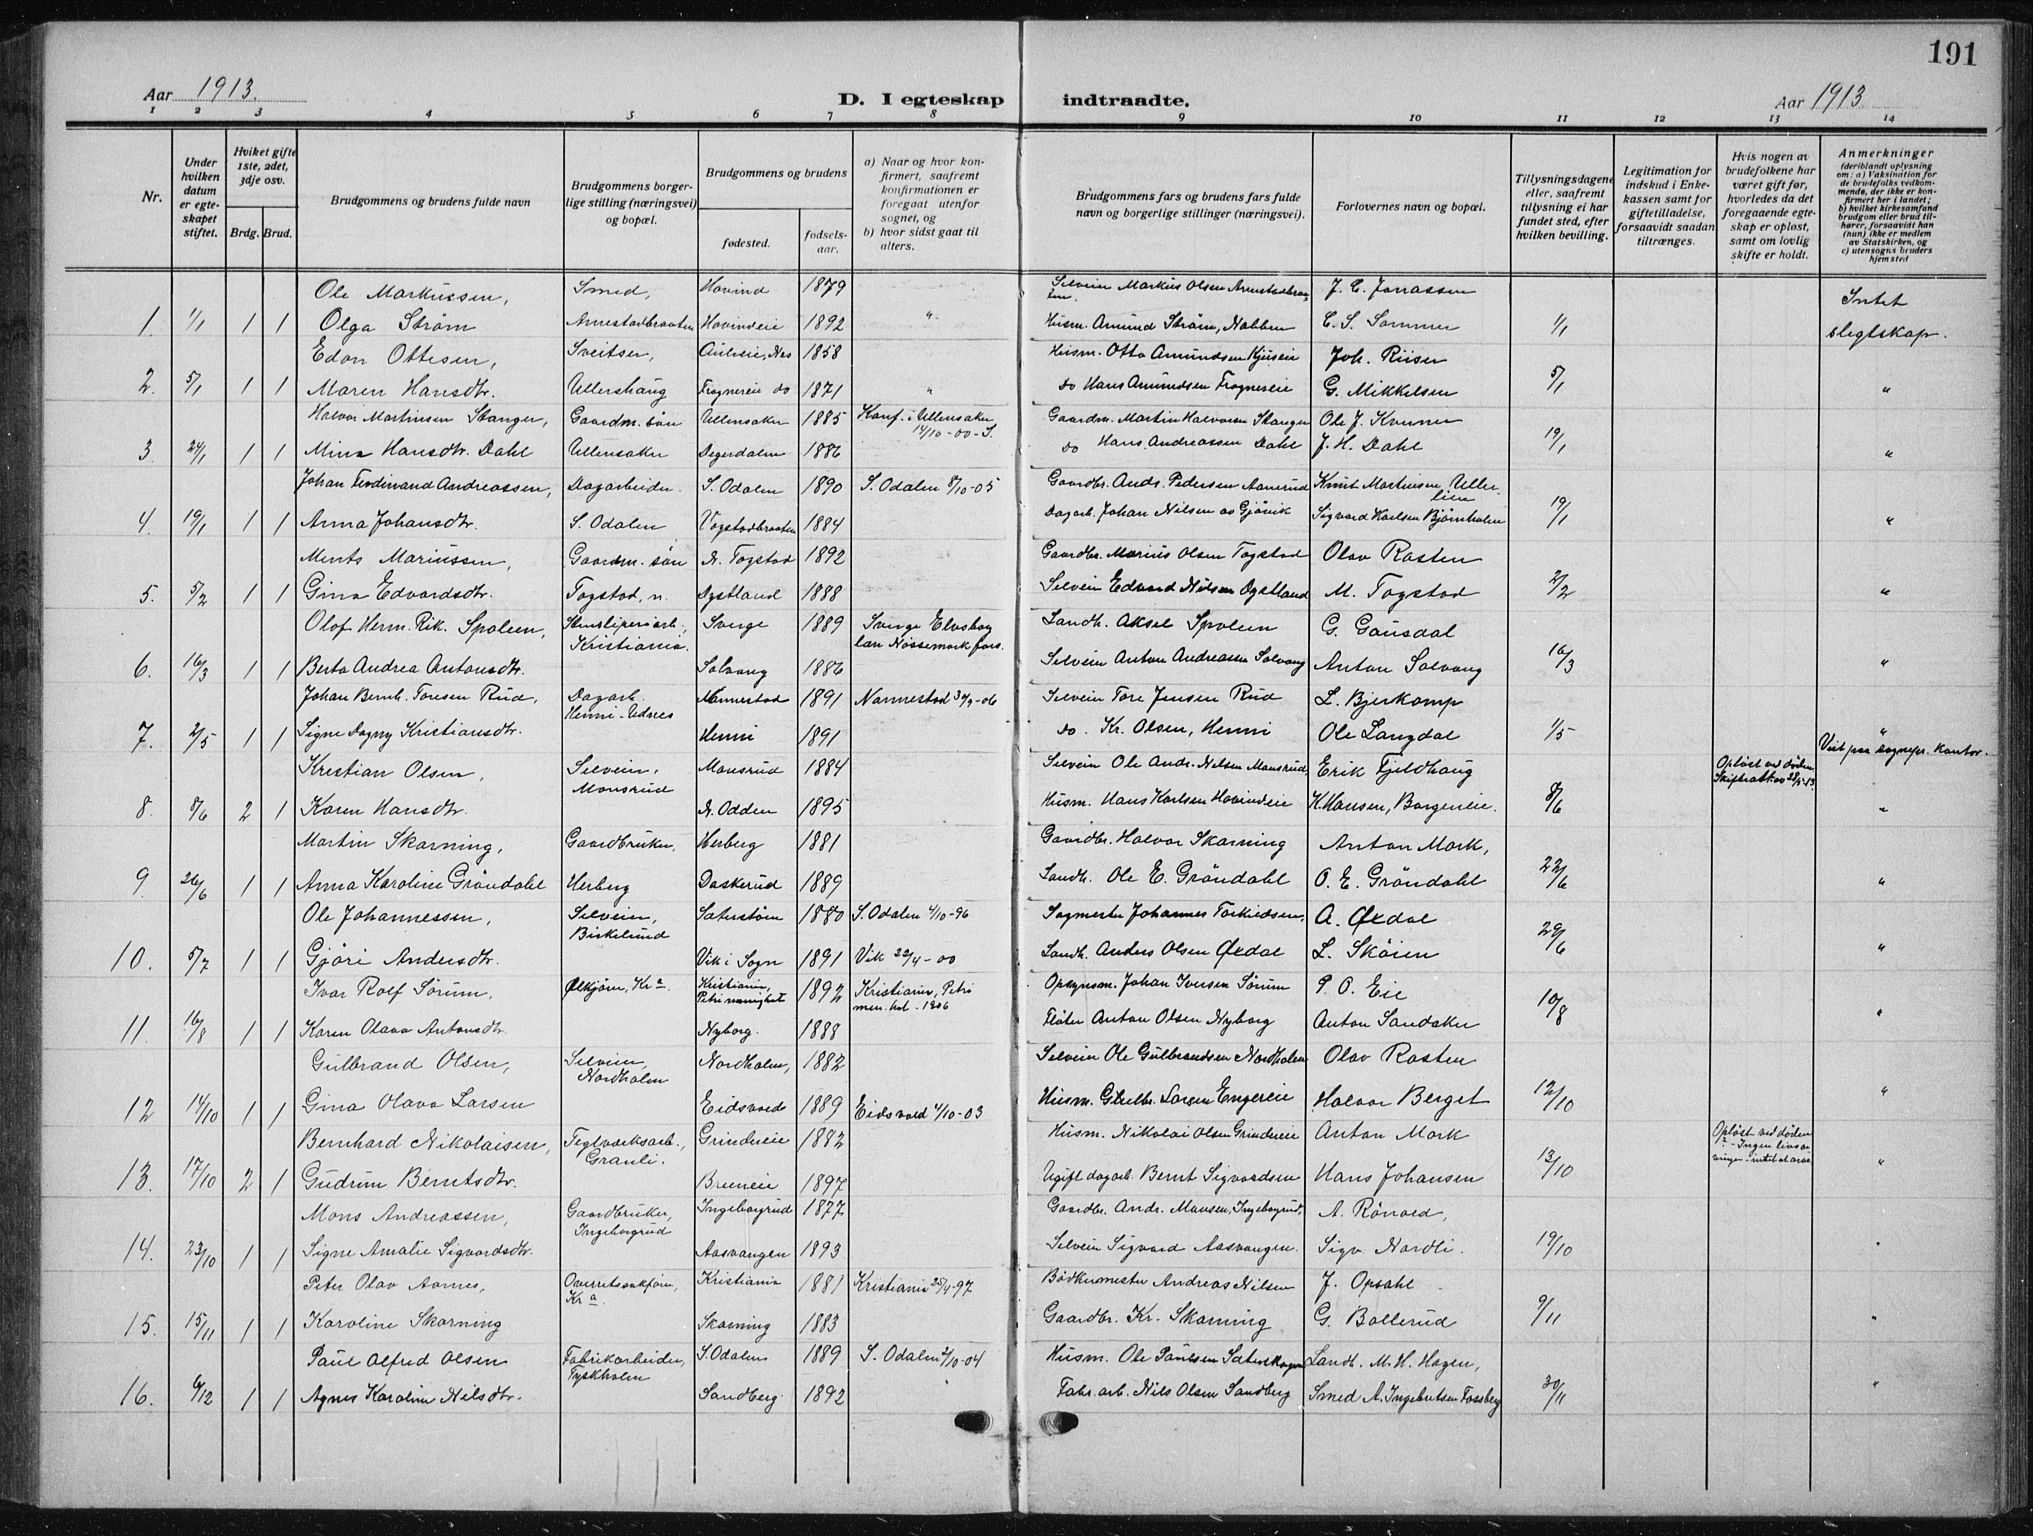 191
Aar 1913. D. I egteskap indtraadte. Aar 1913
1 2 3 4 5 6 7 8 9 10 11 12 13 14
Nr.
Under hvilken datum er egteskapet stiftet.
Hviket gifte 1ste, 2det, 3dje osv.
Brdg. Brud.
Brudgommens og brudens fulde navn
Brudgommens borgerlige stilling (næringsvei) og bopæl.
Brudgommens og brudens
fødested. fødselsaar.
a) Naar og hvor konfirmert, saafremt konfirmationen er foregaat utenfor sognet, og
b) hvor sidst gaat til alters.
Brudgommens fars og brudens fars fulde navn og borgerlige stillinger (næringsvei).
Forlovernes navn og bopæl.
Tillysningsdagene eller, saafremt tillysning ei har fundet sted, efter hvilken bevilling.
Legitimation for indskud i Enkekassen samt for giftetilladelse, forsaavidt saadan tiltrænges.
Hvis nogen av brudefolkene har været gift før, hvorledes da det foregaaende egteskap er opløst, samt om lovlig skifte er holdt.
Anmerkninger (deriblandt oplysning om: a) Vaksination for de brudefolks vedkommende, der ikke er konfirmert her i landet; b) hvilket kirkesamfund brudgom eller brud tilhører, forsaavidt han (hun) ikke er medlem av Statskirken, og c) utensogns bruders hjemsted
Ole Markussen, Smed, Hovind 1879 Selveier Markus Olsen J. C. Jonassen Intet
1. 1/1 1 1 Olga Strøm Arnestadbraaten Hovindeie 1892 " Husm. Amund Strøm, Nabben C. S. Sommer 1/1 slegtskap.
Edon Ottesen, Sveitser, Aulieie, Nes 1858 Husm. Otto Amundsen Joh. Riiser
2. 5/1 1 1 Maren Hansdtr. Ullershaug Frognereie do 1871 " do Hans Amundsen Frognereie G. Mikkelsen 5/1 "
Halvor Martinsen Stanger, Gaardm. søn Ullensaker 1885 Konf. i Ullensaker 14/10-00-S. Gaardm. Martin Halvorsen Stanger Ole J. Kverner
3 24/1 1 1 Mina Hansdtr. Dahl Ullensaker Degerdalen 1886 do Hans Andreassen Dahl J. H. Dahl 19/1 "
Johan Ferdinand Andreassen, Dagarbeider. S. Odalen 1890 S. Odalen 8/10-05 Gaardbr. Andr. Pedersen Aamrud Knut Martinsen Ullerlien
4. 19/1 1 1 Anna Johansdtr. S. Odalen Vogstadbraaten 1884 Dagarb. Johan Nilsen av Gjøvik Sigvard Karlsen Bjørnholen 19/1 "
Ments Mariussen, Gaardm. søn N. Togstad 1892 Gaardbr. Marius Olsen Togstad Olav Rasten
5. 5/2 1 1 Gina Edvardsdtr. Togstad, n. Dystland 1888 Selveier Edvard Nilsen Dystland M. Togstad 2/2 "
Olof Herm. Rik. Spolen, Stensliperiarb., Kristiania. Sverige 1889 Sverige Elvsborg län Nössemark förs. Landh. Aksel Spolen G. Gausdal
6. 16/3 1 1 Berta Andrea Antonsdtr. Solvang 1886 Selveier Anton Andreassen Solvang Anton Solvang 16/3 "
Johan Bernh. Toresen Rud, Dagarb. Henni-Udnes Nannestad 1891 Nannestad 30/9-06 Selveier Tore Jensen Rud L. Bjerkamp
7. 2/5 1 1 Signe Dagny Kristiansdtr. Henni 1891 do. Kr. Olsen, Henni Ole Langdal 1/5 "
Kristian Olsen, Selveier, Monsrud Monsrud 1884 Selveier Ole Andr. Nilsen Monsrud, Erik Fjeldhaug Opløst ved døden Skifteatt. av 28/5-13. Viet paa sognepr. kontor.
8. 8/6 2 1 Karen Hansdtr. N. Odden 1895 Husm. Hans Karlsen Hovindeie K. Hansen, Borgeneie. 8/6 "
Martin Skarning, Gaardbruker, Herberg 1881 Gaardbr. Halvor Skarning Anton Mork,
9 26/6 1 1 Anna Karoline Grøndahl Herberg Daskerud 1889 Landh. Ole E. Grøndahl O. E. Grøndahl 22/6 "
Ole Johannessen, Selveier, Birkelund Säterstøen 1880 S. Odalen 4/10-96 Sagmester Johannes Torkildsen, A. Øxdal
10. 5/7 1 1 Gjøri Andersdtr. Vik i Sogn 1891 Vik 22/4-00 Landh. Anders Olsen Øxdal L. Skøien 29/6 "
Ivar Rolf Sørum, Ølkjører, Kra. Kristiania, Petri menighet 1892 Kristiania, Petri men. 1906 Opsynsm. Johan Iversen Sørum P. O. Eie
11. 16/8 1 1 Karen Olava Antonsdtr. Nyborg. 1888 Fløter Anton Olsen Nyborg Anton Sandaker 10/8 "
Gulbrand Olsen, Selveier, Nordholen Nordholen, 1882 Selveier Ole Gulbrandsen Nordholen Olav Rasten
12 14/10 1 1 Gina Olava Larsen Eidsvold 1889 Eidsvold 4/10-03 Husm. Gulbr. Larsen Engereie Halvor Berget 12/10 "
Bernhard Nikolaisen, Teglverksarb., Granli. Grindereie 1882 Husm. Nikolai Olsen Grindereie Anton Mork Opløst ved døden - Ingen livsarvinger - intet at arve
13. 17/10 2 1 Gudrun Berntsdtr. Breeneie 1897 Ugift dagarb. Bernt Sigvardsen Hans Johansen 13/10 "
Mons Andreassen, Gaardbruker, Ingeborgrud Ingeborgrud 1877 Gaardbr. Andr. Monsen, Ingeborgrud, A. Rønold,
14. 23/10 1 1 Signe Amalie Sigvardsdtr. Aasvangen 1893 Selveier Sigvard Aasvangen. Sigv Nordli. 19/10 "
Peter Olav Aarnes, Overretssakfører, Kra. Kristiania 1881 Kristiania 25/4-97 Bødkermester Andreas Nilsen J. Opsahl
15. 15/11 1 1 Karoline Skarning Skarning 1883 Gaardbr. Kr. Skarning G. Bollerud 9/11 "
Paul Alfred Olsen Fabrikarbeider, Tyskholen S. Odalen 1889 S. Odalen 2/10-04 Husm. Ole Paulsen Säterskogen Landh. M. H. Hagen,
16. 6/12 1 1 Agnes Karoline Nilsdtr. Sandberg 1892 Fabr. arb. Nils Olsen Sandberg Smed A. Ingebretsen Fossberg 30/11 "